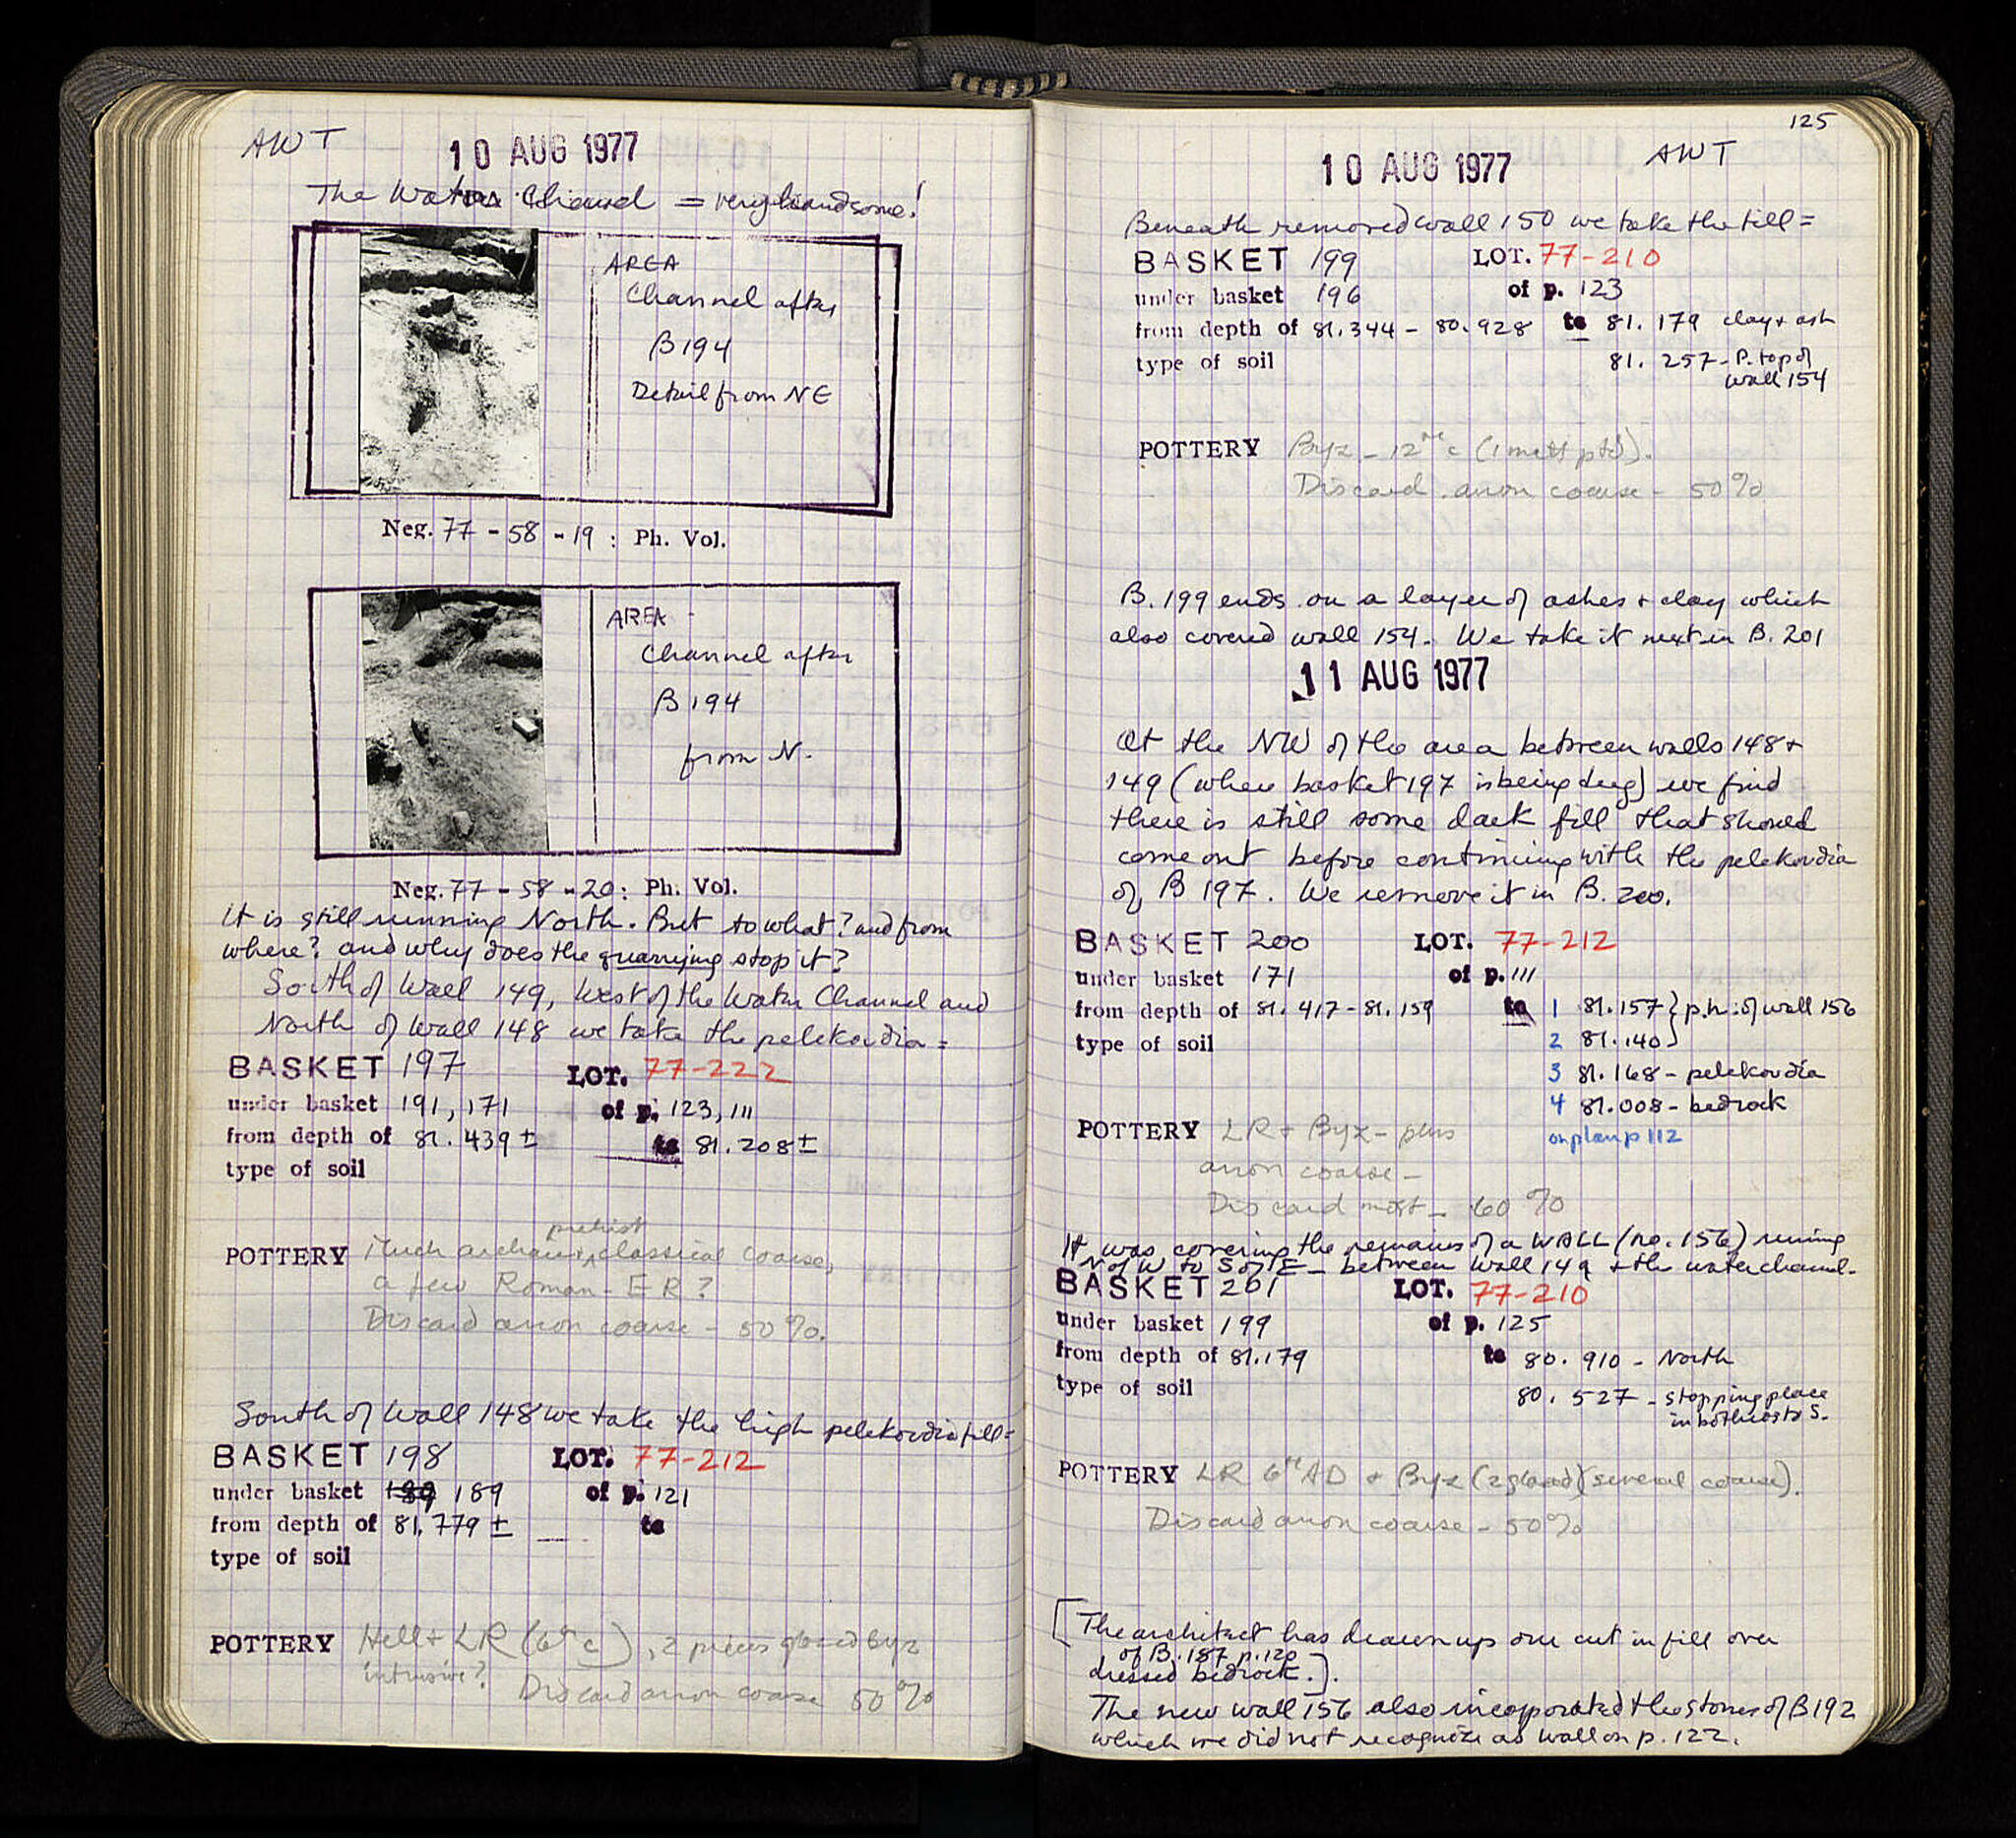 AWT
10 AUG 1977
The Water Channel = very handsome!
AREA
Channel after
B194
Detail from NE
Neg. 77-58-19 : Ph. Vol.
AREA
Channel after
B194
from N.
Neg. 77-58-20 : Ph. Vol.
It is still running North. But to what? and from
where? and why does the quarrying stop it?
South of Wall 149, West of the Water Channel and
North of Wall 148 we take the pelekoudia =
BASKET 197 LOT. 77-222
under basket 191, 171 of p. 123, 111
from depth of 81.439± to 81.208±
type of soil
prehist
POTTERY Much archaic, classical coarse,
a few Roman - ER?
Discard anon coarse - 50%.
South of Wall 148 we take the high pelekoudia fill =
BASKET 198 LOT. 77-212
under basket 189 of p. 121
from depth of 81.779± to
type of soil
POTTERY Hell + LR (6th c), 2 pieces glazed byz
intrusive? Discard anon coarse 50%
125
10 AUG 1977 AWT
Beneath removed wall 150 we take the fill =
BASKET 199 LOT. 77-210
under basket 196 of p. 123
from depth of 81.344 - 80.928 to 81.179 clay + ash
type of soil 81.257 - P. top of
wall 154
POTTERY Byz - 12th c (1 matt ptd).
Discard anon coarse - 50%
B. 199 ends on a layer of ashes + clay which
also covered wall 154. We take it next in B. 201
11 AUG 1977
At the NW of the area between walls 148 +
149 (where basket 197 is being dug) we find
there is still some dark fill that should
come out before continuing with the pelekoudia
of B 197. We remove it in B. 200.
BASKET 200 LOT. 77-212
under basket 171 of p. 111
from depth of 81.417 - 81.159 to 1 81.157 } p.h. of wall 156
type of soil 2 81.140
3 81.168 - pelekoudia
4 81.008 - bedrock
on plan p 112
POTTERY LR + Byz - plus
anon coarse -
Discard most - 60%
It was covering the remains of a WALL (no. 156) running
N of W to S of E - between wall 149 + the water channel.
BASKET 201 LOT. 77-210
under basket 199 of p. 125
from depth of 81.179 to 80.910 - North
type of soil 80.527 - stopping place
in bothros to S.
POTTERY LR 6th AD + Byz (2 glazed) (several coarse).
Discard anon coarse - 50%
[The architect has drawn up our cut in fill over
of B. 187 p. 120
dressed bedrock.].
The new wall 156 also incorporated the stones of B192
which we did not recognize as wall on p. 122.